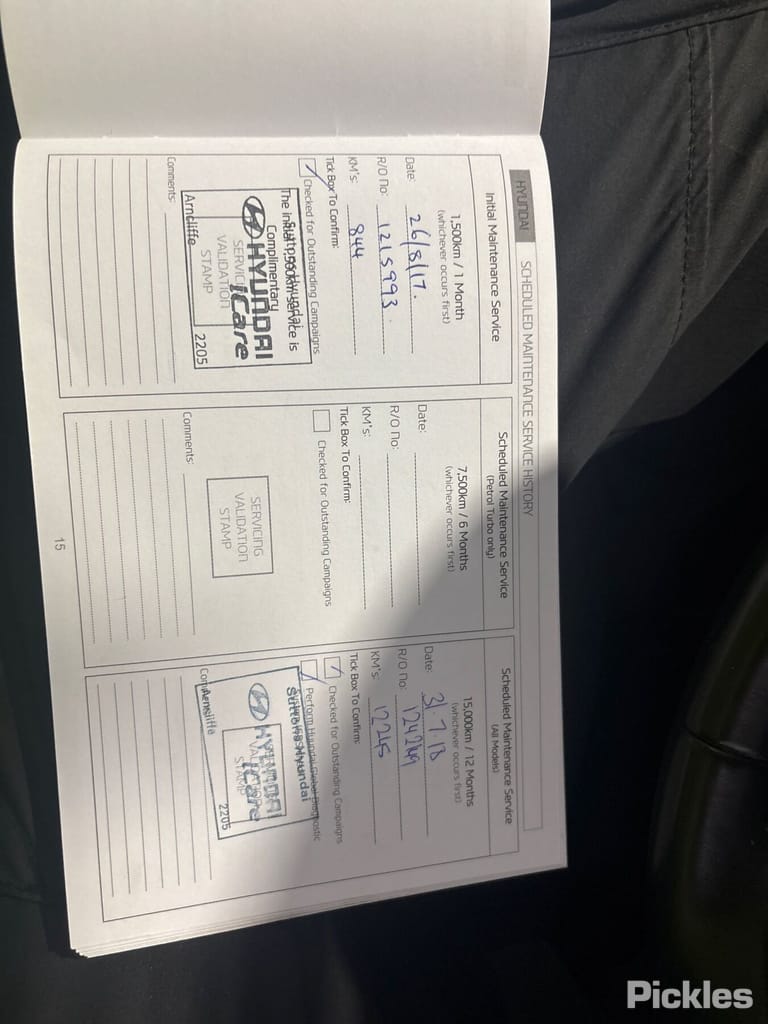 HYUNDAI SCHEDULED MAINTENANCE SERVICE HISTORY
Initial Maintenance Service
1,500km / 1 Month
(whichever occurs first)
Date: 26/8/17.
R/O No: 1215993
KM's: 844
Tick Box To Confirm:
Checked for Outstanding Campaigns
The initial 1,500km service is
Suttons Hyundai
Complimentary
HYUNDAI
iCare
SERVICING
VALIDATION
STAMP
Arncliffe 2205
Comments:
Scheduled Maintenance Service
(Petrol Turbo only)
7,500km / 6 Months
(whichever occurs first)
Date:
R/O No:
KM's:
Tick Box To Confirm:
Checked for Outstanding Campaigns
SERVICING
VALIDATION
STAMP
Comments:
15
Scheduled Maintenance Service
(All Models)
15,000km / 12 Months
(whichever occurs first)
Date: 31.7.18
R/O No: 124249
KM's: 12245
Tick Box To Confirm:
Checked for Outstanding Campaigns
Perform Hyundai Global Diagnostic
Suttons Hyundai
HYUNDAI
iCare
STAMP
Arncliffe 2205
Comments:
Pickles